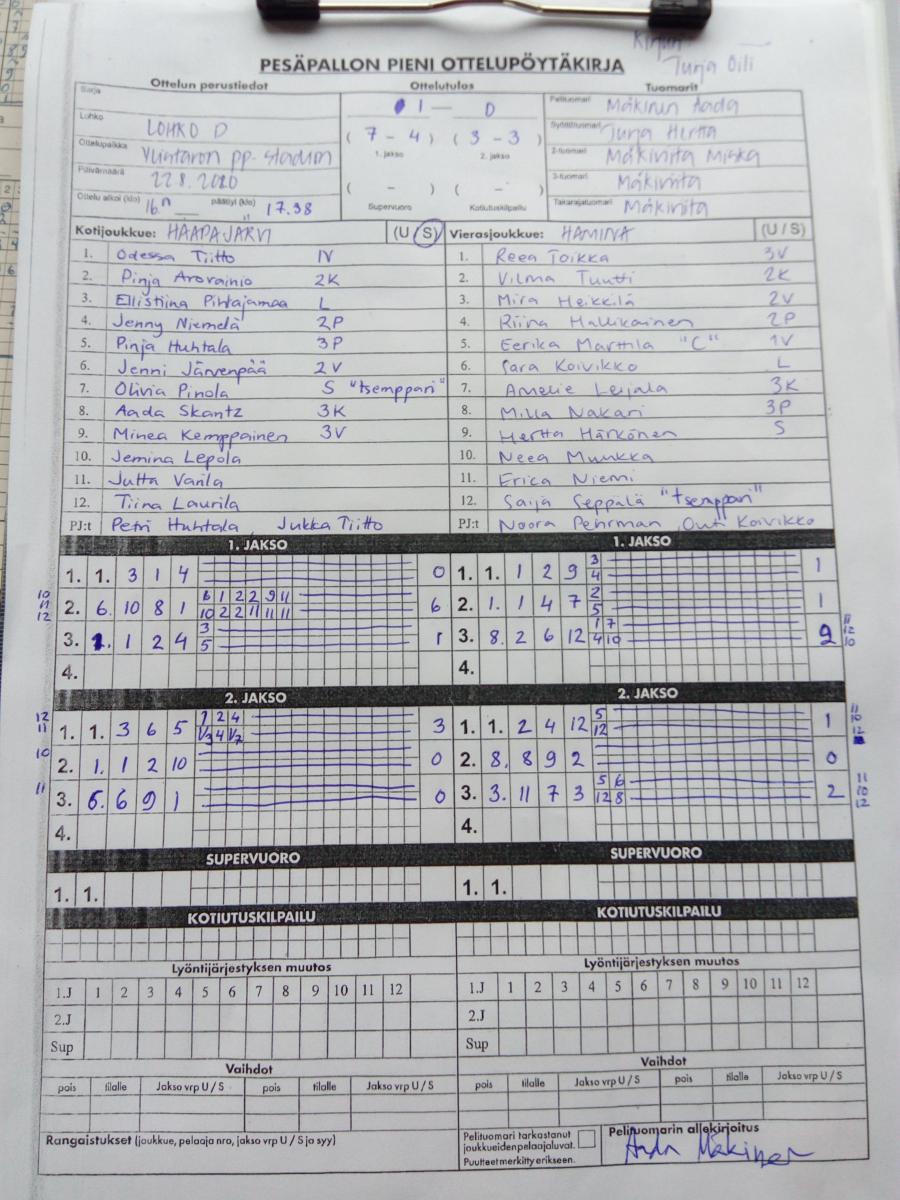 Kirjuri
Turja Oili
PESÄPALLON PIENI OTTELUPÖYTÄKIRJA
Ottelun perustiedot Ottelutulos Tuomarit
Sarja 1 — 0 Pelituomari Mäkinen Aada
Lohko LOHKO D ( 7 - 4 ) ( 3 - 3 ) Syöttötuomari Turja Hertta
1. jakso 2. jakso
Ottelupaikka Vuntaron pp-stadion 2-tuomari Mäkiniita Miska
Päivämäärä 22.8.2020 ( - ) ( - ) 3-tuomari Mäkiniita
Ottelu alkoi (klo) 16. päättyi (klo) 17.38 Supervuoro Kotiutuskilpailu Takarajatuomari Mäkiniita
Kotijoukkue: HAAPAJÄRVI (U / S) Vierasjoukkue: HAMINA (U / S)
1. Odessa Tiitto 1V 1. Reea Toikka 3V
2. Pinja Arovainio 2K 2. Vilma Tuutti 2K
3. Ellistiina Pihlajamaa L 3. Mira Heikkilä 2V
4. Jenny Niemelä 2P 4. Riina Hallikainen 2P
5. Pinja Huhtala 3P 5. Eerika Marttila "C" 1V
6. Jenni Järvenpää 2V 6. Sara Koivikko L
7. Olivia Pinola S "tsemppari" 7. Amelie Leijala 3K
8. Aada Skantz 3K 8. Milla Nakari 3P
9. Minea Kemppainen 3V 9. Hertta Härkönen S
10. Jemina Lepola 10. Neea Muukka
11. Jutta Varila 11. Erica Niemi
12. Tiina Laurila 12. Saija Seppälä "tsemppari"
PJ:t Petri Huhtala, Jukka Tiitto PJ:t Noora Pehrman, Outi Koivikko
1. JAKSO 1. JAKSO
1. 1. 3 1 4 0 1. 1. 1 2 9 3 4 1
10 11 12 2. 6. 10 8 1 6 1 2 2 9 11 10 2 2 11 11 11 6 2. 1. 1 4 7 2 5 1
3. 1. 1 2 4 3 5 1 3. 8. 2 6 12 1 7 4 10 2 11 12 10
4. 4.
2. JAKSO 2. JAKSO
12 11 1. 1. 3 6 5 1 2 4 1/3 4 1/7 3 1. 1. 2 4 12 5 12 1 11 10 12
10 2. 1. 1 2 10 0 2. 8. 8 9 2 0
11 3. 6. 6 9 1 0 3. 3. 11 7 3 5 6 12 8 2 11 10 12
4. 4.
SUPERVUORO SUPERVUORO
1. 1. 1. 1.
KOTIUTUSKILPAILU KOTIUTUSKILPAILU
Lyöntijärjestyksen muutos Lyöntijärjestyksen muutos
1.J 1 2 3 4 5 6 7 8 9 10 11 12 1.J 1 2 3 4 5 6 7 8 9 10 11 12
2.J 2.J
Sup Sup
Vaihdot Vaihdot
pois tilalle Jakso vrp U / S pois tilalle Jakso vrp U / S pois tilalle Jakso vrp U / S pois tilalle Jakso vrp U / S
Rangaistukset (joukkue, pelaaja nro, jakso U / S ja syy) Pelituomari tarkastanut Pelituomarin allekirjoitus
joukkueidenpelaajaluvat. Aada Mäkinen
Puutteet merkitty erikseen.